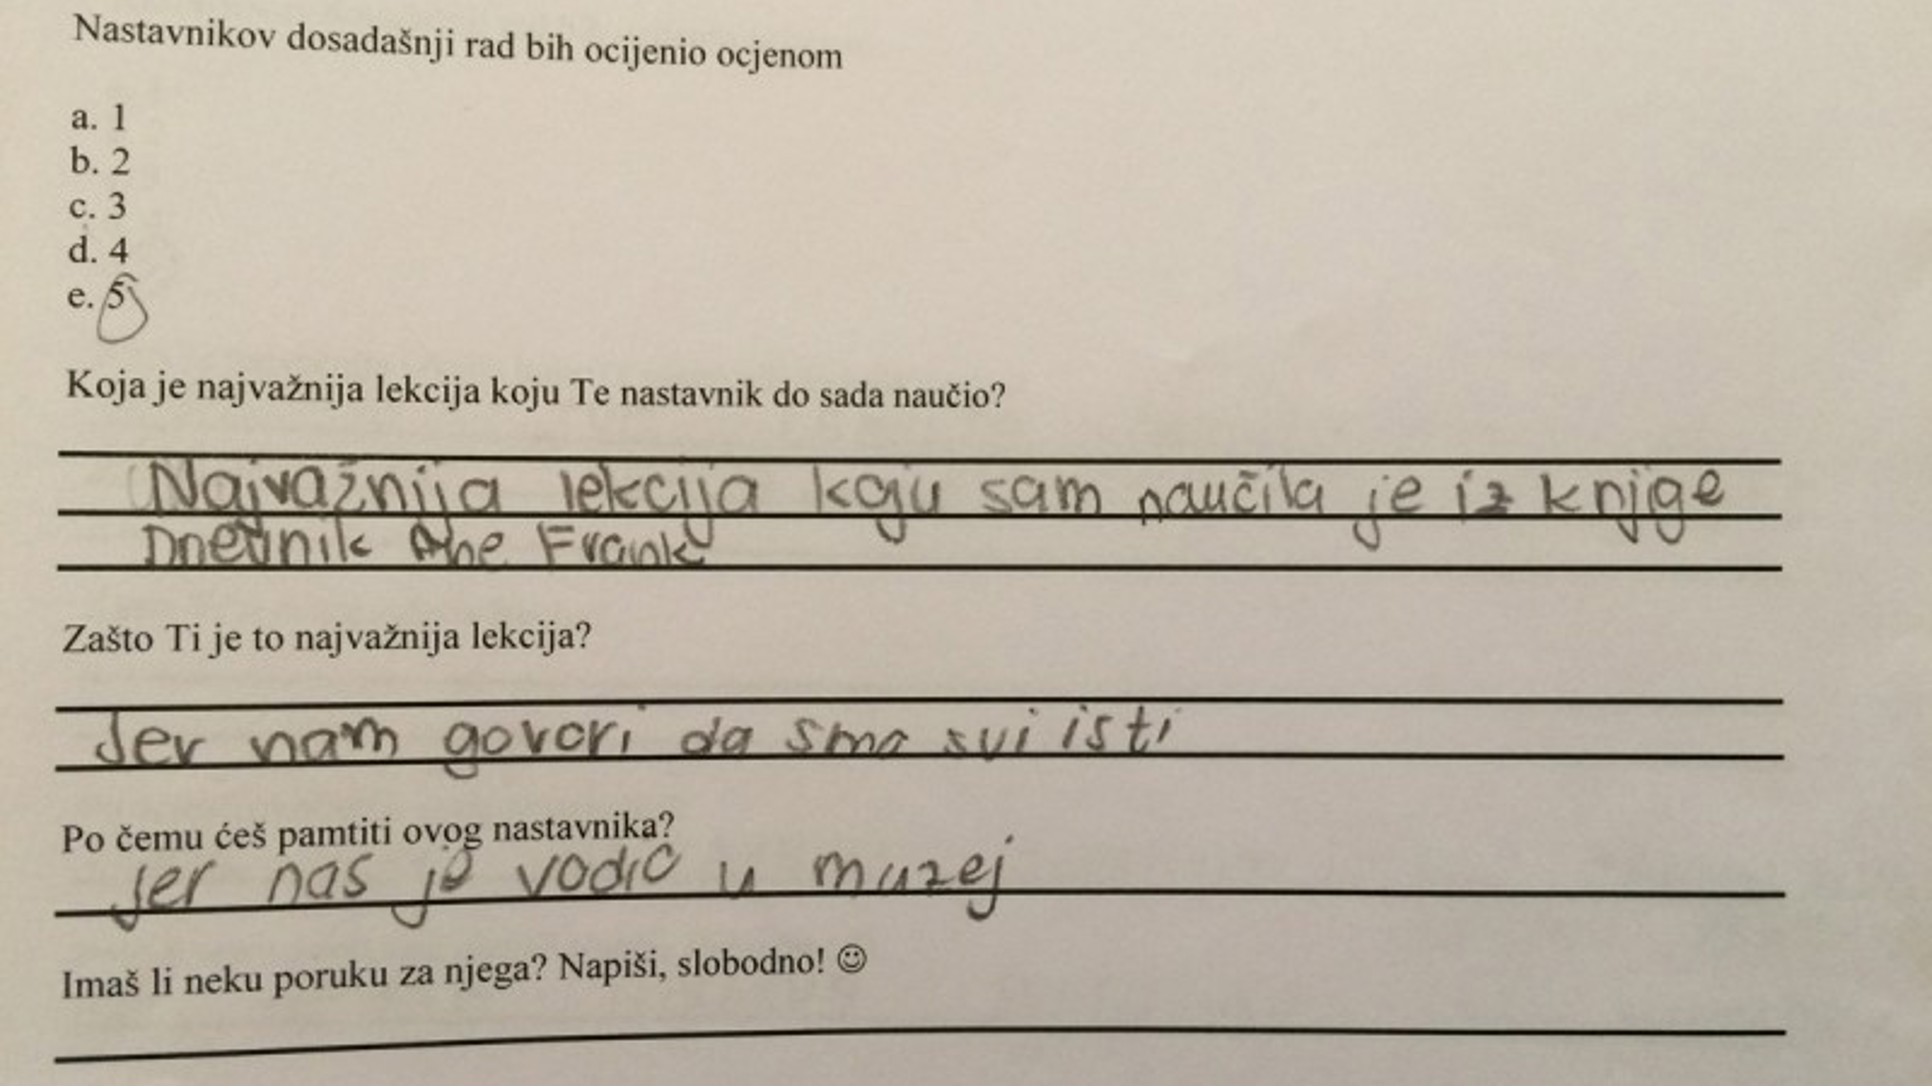 Nastavnikov dosadašnji rad bih ocijenio ocjenom
a. 1
b. 2
c. 3
d. 4
e. 5
Koja je najvažnija lekcija koju Te nastavnik do sada naučio?
Najvažnija lekcija koju sam naučila je iz knjige
Dnevnik Ane Frank
Zašto Ti je to najvažnija lekcija?
Jer nam govori da smo svi isti
Po čemu ćeš pamtiti ovog nastavnika?
Jer nas je vodio u muzej
Imaš li neku poruku za njega? Napiši, slobodno! ☺